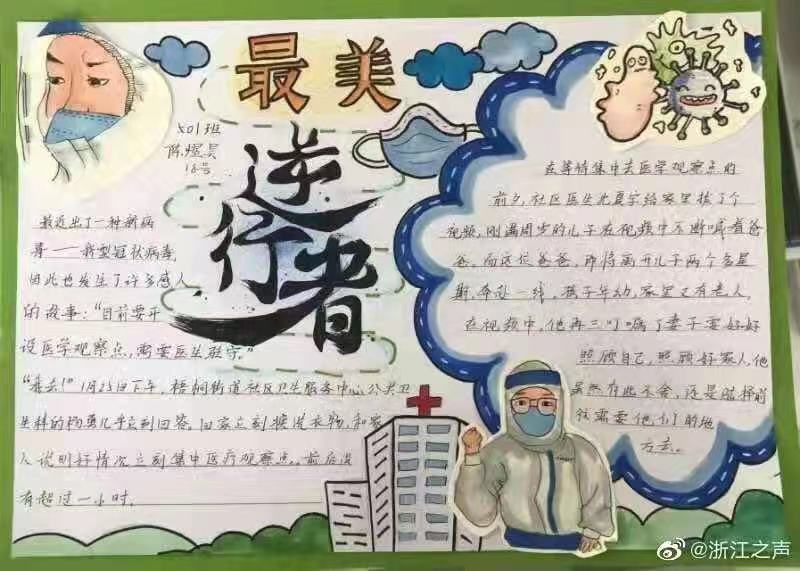 最美
逆行者
501班
陈煜昊
18号
最近出了一种新病
毒——新型冠状病毒,
因此也发生了许多感人
的故事:“目前要开
设医学观察点,需要医生驻守。”
“我去!”1月25日下午,梧桐街道社区卫生服务中心公共卫
生科的杨勇几乎立刻回答。回家立刻换洗衣物,和家
人说明好情况立刻集中医疗观察点。前后没
有超过一小时。
在等待集中去医学观察点的
前夕,社区医生沈夏宇给家里拨了个
视频,刚满周岁的儿子在视频中不断喊着爸
爸。而这位爸爸,即将离开儿子两个多星
期,奔赴一线,孩子年幼,家里又有老人,
在视频中,他再三叮嘱了妻子要好好
照顾自己,照顾好家人,他
虽然有些不舍,还是选择前
往需要他们的地
方去。
@浙江之声